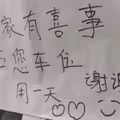 家有喜事
您车位
用一天
谢